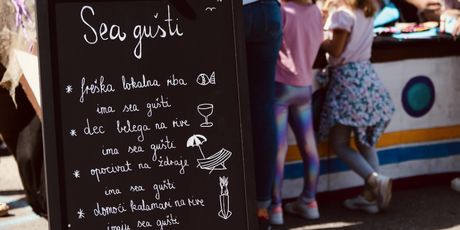 Sea gušti
* friška lokalna riba
ima sea gušti
* dec belega na rive
ima sea gušti
* opocivat na ždraje
ima sea gušti
* domoći kalamari na rive
imaju sea gušti